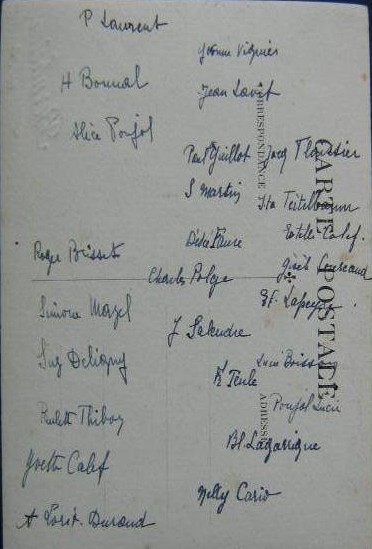 P Laurent
H Bonnal
Alice Poujol
Roger Brisset
Simone Mazel
Suz Deligny
Paulette Thibon
Yvette Calef
A Durand
Yvonne Vignier
Jean Lavit
Paul Guillot
S Martin
Didié Faure
Charles Polge
J Salendre
K Teule
Bl. Lagarrigue
Nelly Cario
Jacq Flaissier
Ita Teitelbaum
Estelle Calef.
Ef. Lapeyre
Lucie Boisson
Poujol Lucie
CARTE POSTALE
CORRESPONDANCE
ADRESSE